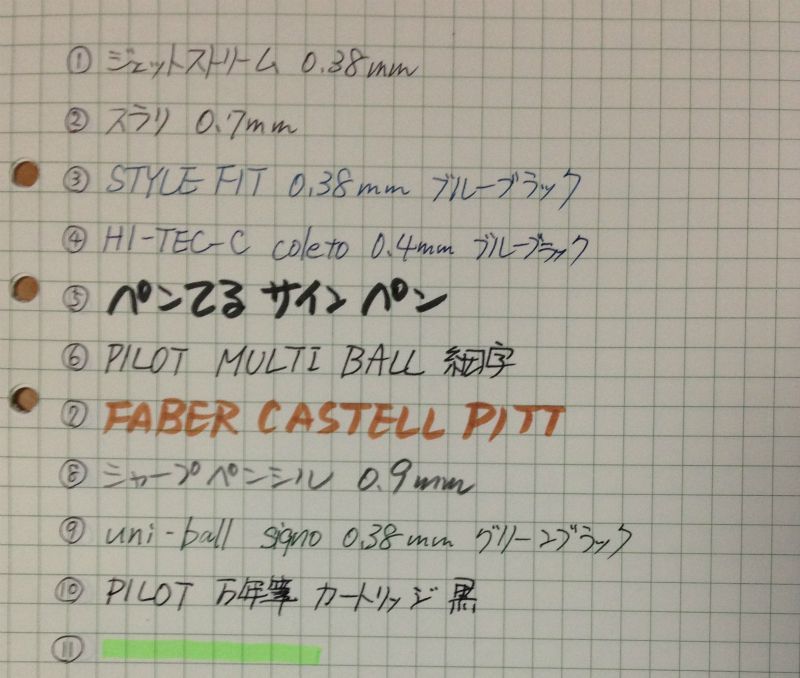 ① ジェットストリーム 0.38mm
② スラリ 0.7mm
③ STYLE FIT 0.38mm ブルーブラック
④ HI-TEC-C coleto 0.4mm ブルーブラック
⑤ ぺんてる サインペン
⑥ PILOT MULTI BALL 細字
⑦ FABER CASTELL PITT
⑧ シャープペンシル 0.9mm
⑨ uni-ball signo 0.38mm グリーンブラック
⑩ PILOT 万年筆 カートリッジ 黒
⑪